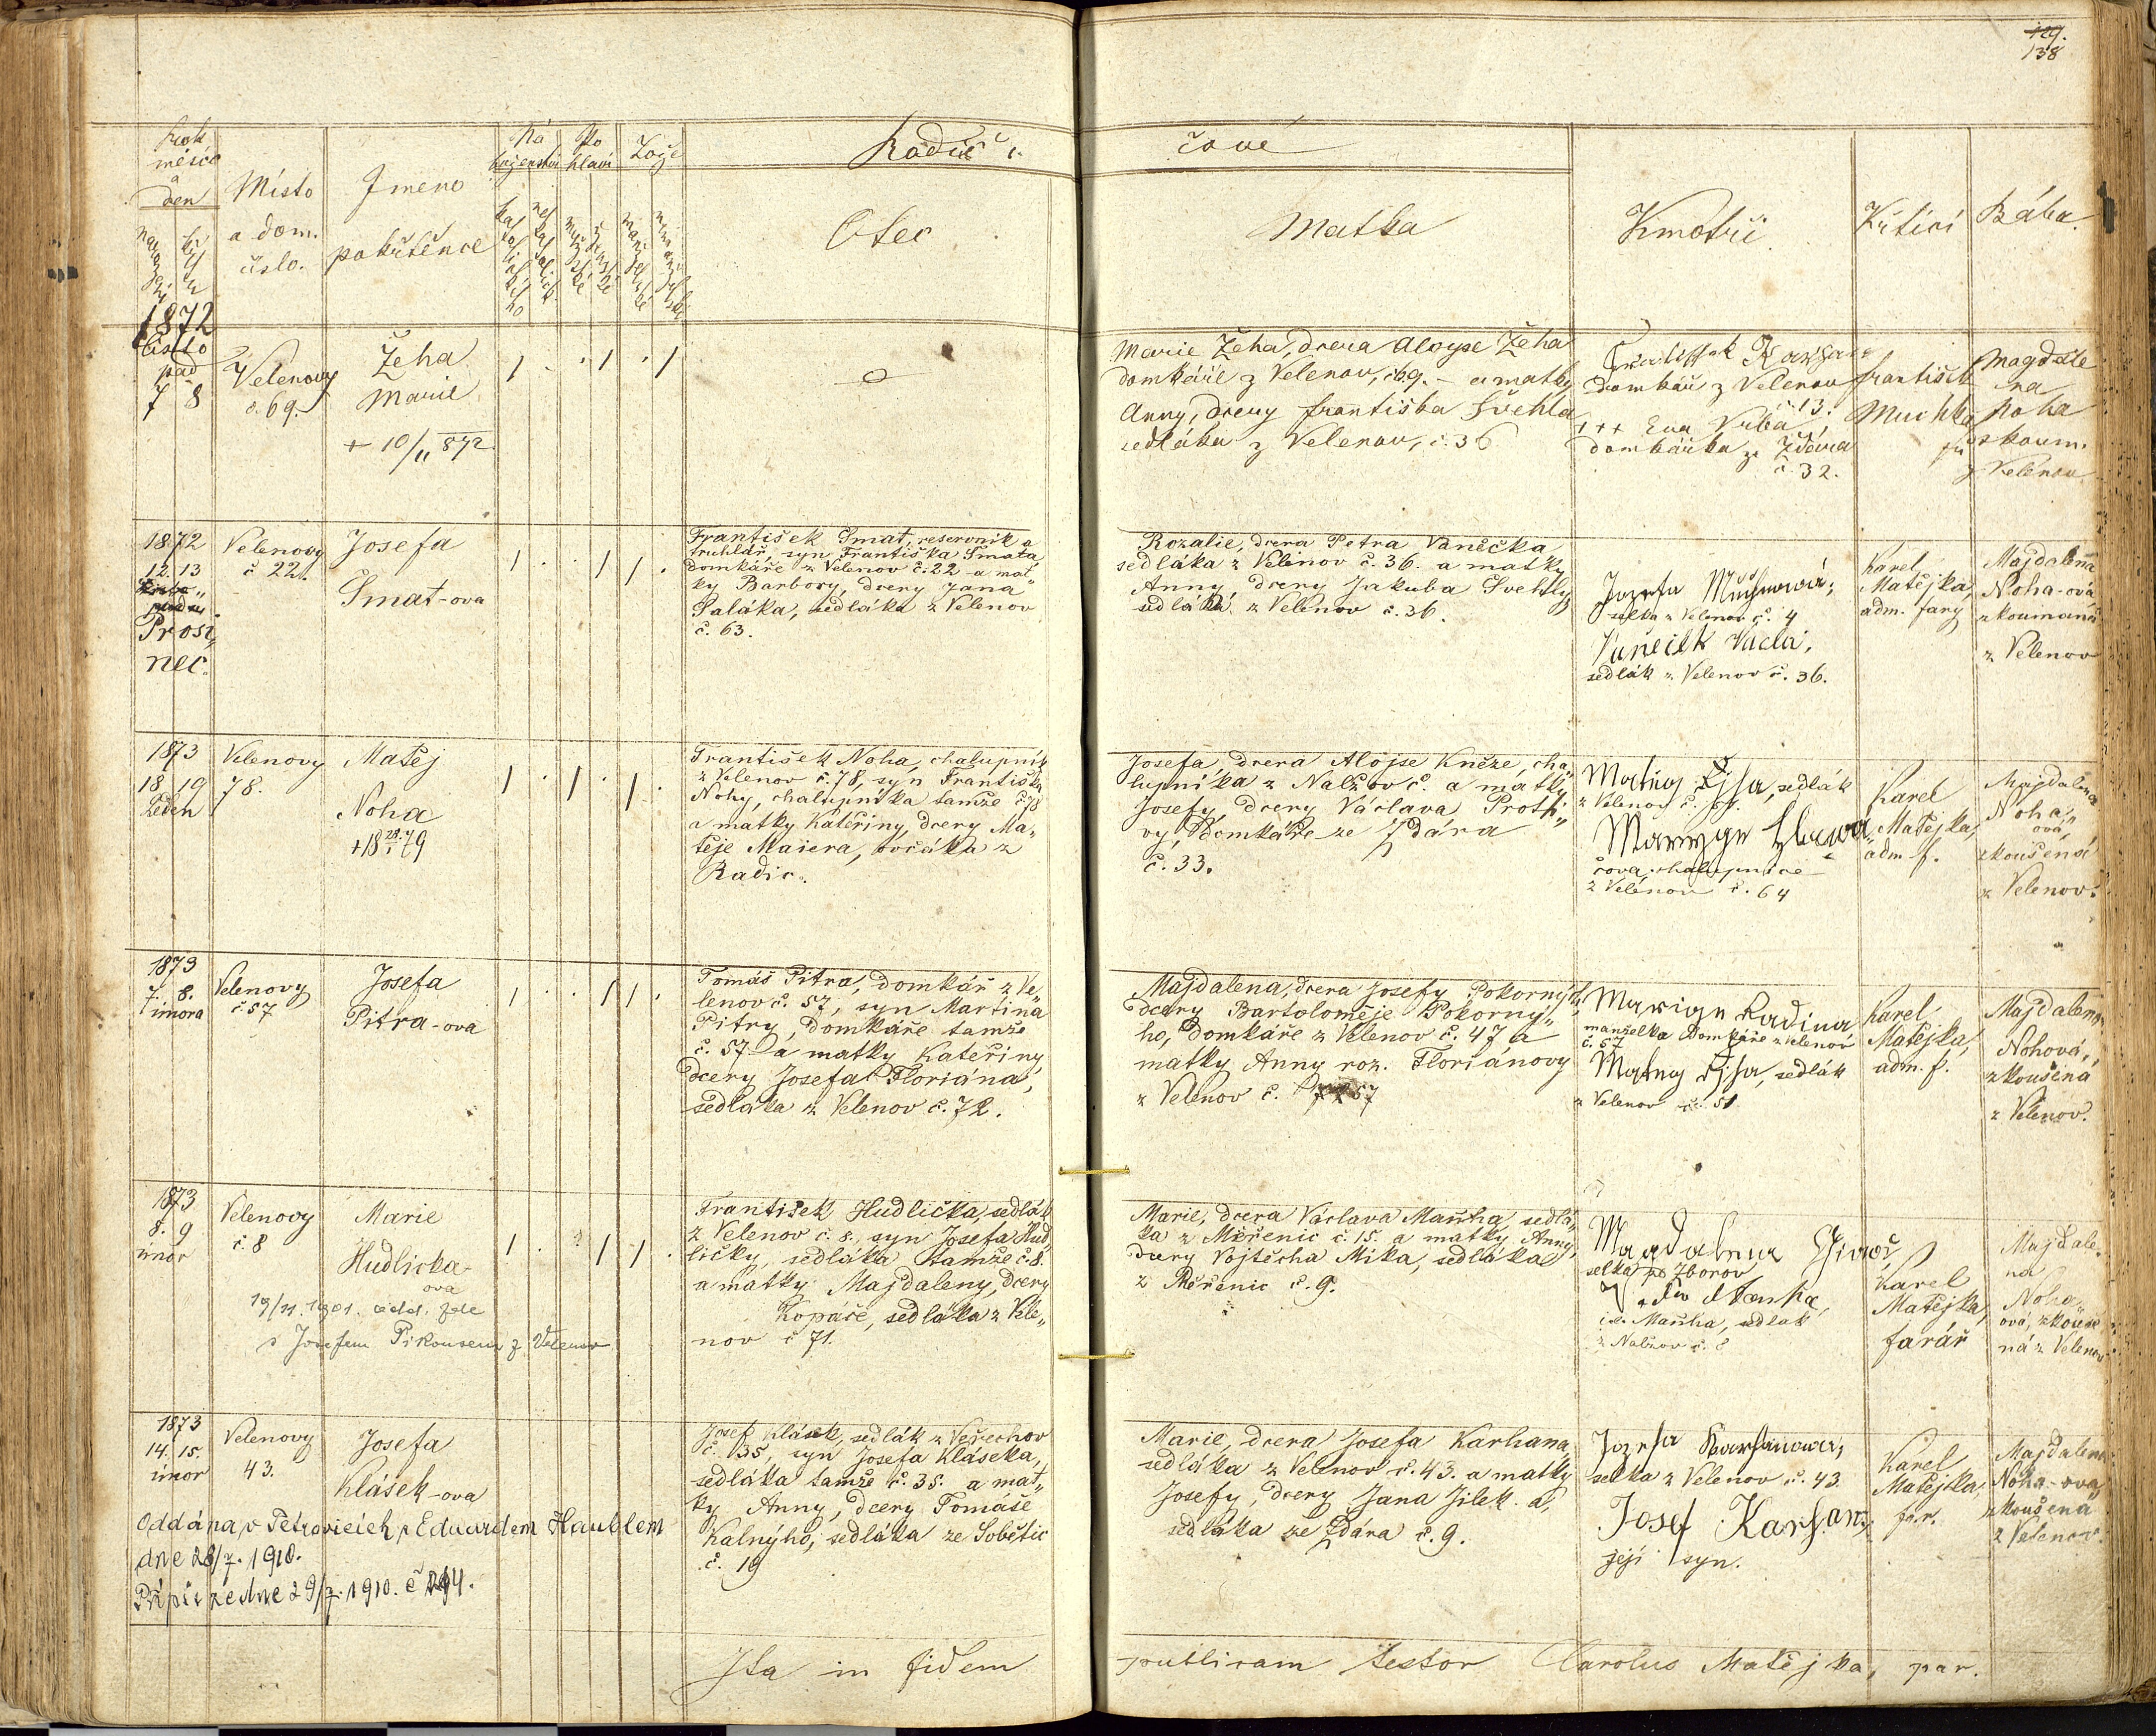 129.
138
Rok
měsíc
a
den
Místo
a dom.
číslo.
Jmeno
pokřtěnce
Ná
boženství
Po
hlaví
Lože
Rodič
čové
Otec
Matka
Kmotři
Křtící
Bába.
1872
listo
pad
7 8
Velenovy
č. 69.
Žeha
Marie
+ 10/11 872
Marie Žeha, dcera Aloyse Žeha
domkáře z Velenov, č. 69. – a matky
Anny, dcery Františka Švehla
sedláka z Velenov, č. 36
domkář z Velenov
č 13.
+++ Eva Vrba,
domkářka ze Ždára
č. 32.
František
Muchka
Magdale
na
Noha
zkoum.
z Velenov
1872
12. 13
Prosi„
nec.
Velenovy
č 22.
Josefa
Šmat-ova
František Šmat, reservník a
truhlář, syn Františka Šmata
domkáře z Velenov č. 22 a mat„
ky Barbory, dcery Jana
Saláka, sedláka z Velenov
č. 63.
Rozalie, dcera Petra Vaněčka
sedláka z Velenov č. 36. a matky
Anny dcery Jakuba Švehly
sedláka z Velenov č. 36.
selka z Velenov č. 4
sedlák z Velenov č. 36.
Karel
Matějka,
adm. fary
Majdalena
Noha-ová
zkoumaná
z Velenov
1873
18. 19
Leden
Velenovy
78.
Matěj
Noha
František Noha, chalupník
z Velenov č. 78, syn Františka
Nohy, chalupníka tamže č. 78
a matky Kateřiny, dcery Ma„
těje Maiera, ovčáka z
Radic.
Josefa, dcera Alojse Kněze, cha„
lupníka z Nalžov č. a matky
Josefy, dcery Václava Proth„
vy, domkáře ze Ždára
č. 33.
sedlák
z Velenov č.
čova, chalupnice
z Velenov č. 64
Karel
Matějka,
adm f.
Majdalena
Noha„
ová,
zkoušená
z Velenov.
1873
7. 8.
února
Velenovy
č 57
Josefa
Pitra-ova
Tomáš Pitra, domkář z Ve„
lenov č. 57, syn Martina
Pitry, domkáře tamže
č. 57. a matky Kateřiny
dcery Josefa Floriána,
sedláka z Velenov č. 72.
Majdalena, dcera Josefy Pokorných,
dcery Bartoloměje Pokorný„
ho, domkáře z Velenov č. 47 a
matky Anny roz. Floriánovy
z Velenov č. 57
manželka domkáře z Velenov
č. 57
sedlák
z Velenov č. 51
Karel
Matějka,
adm. f.
Majdalena
Nohová,
zkoušená
z Velenov.
1873
8. 9
únor
Velenovy
č. 8
Marie
Hudlicka-
ova
19/11. 1901. odd. zde
s Josefem Pikousem z Velenov
František Hudlička, sedlák
z Velenov č. 8., syn Josefa Hud„
ličky, sedláka tamže č. 8.
a matky Majdaleny, dcery
Kopáče, sedláka z Vele„
nov č 71.
Marie, dcera Václava Maňha, sedlá„
ka z Měřenic č. 15. a matky Anny,
dcery Vojtěcha Mika, sedláka
z Měřenic č. 9.
Magdalena
selka ze Zborov
i.e. Maňha, sedlák
z Nalžov č. 8
Karel
Matějka,
farář
Majdale„
na
Noha„
ová, zkouše
ná z Velenov
1873
14. 15.
únor
Velenovy
43.
Josefa
Klásek-ova
Oddána v Petrovicích s Eduardem Haublem
dne 28/7. 1910.
Přípis ze dne 29/7. 1910. č 294.
Josef Klásek, sedlák z Veřechov
č. 35, syn Josefa Kláseka,
sedláka tamže č. 35. a mat„
ky Anny, dcery Tomáše
Kalnýho, sedláka ze Soběšic
č. 19
Marie, dcera Josefa Karhana
sedláka z Velenov č. 43. a matky
Josefy, dcery Jana Jilek-a,
sedláka ze Ždára č. 9.
selka z Velenov č. 43.
Josef Karhan,
její syn.
Karel
Matějka,
far.
Majdalena
Noha-ova
zkoušená
z Velenov.
Ita in fidem
publicam testor Carolus Matějka, par.